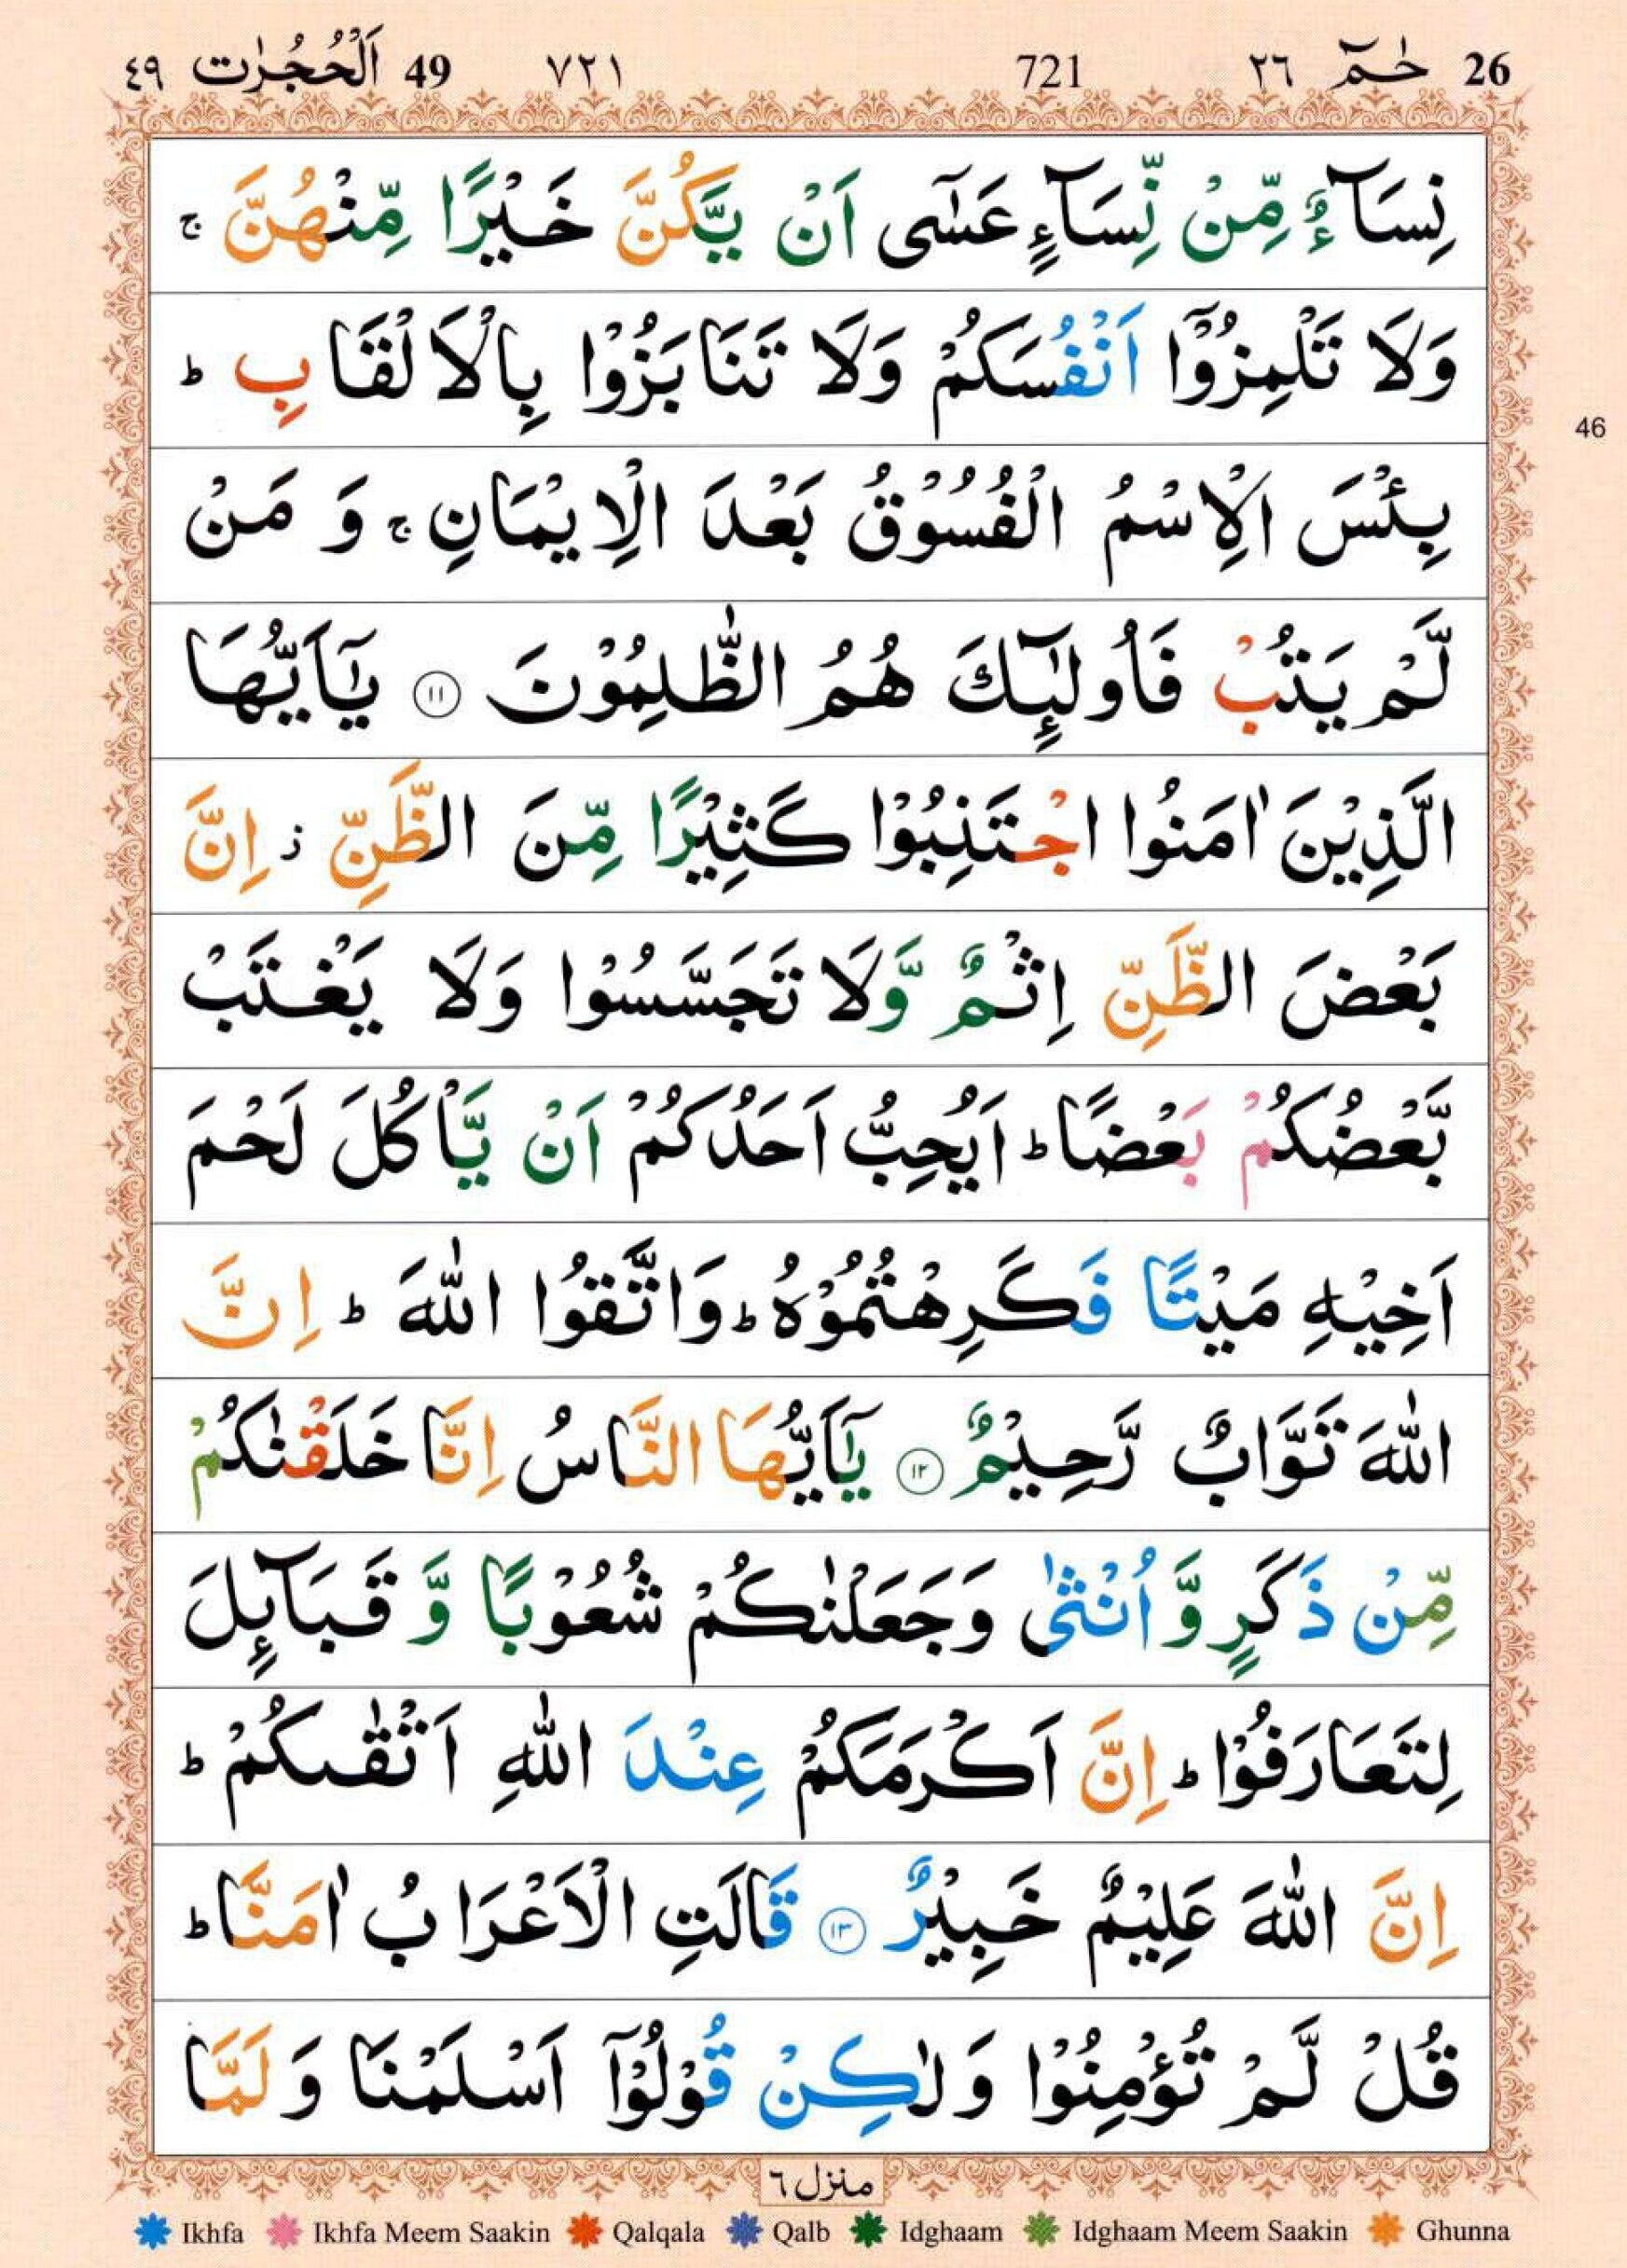 26 حٰمٓ ٢٦ 721 ٧٢١ 49 اَلْحُجُرٰت ٤٩
نِسَآءٌ مِّنْ نِّسَآءٍ عَسٰٓى اَنْ يَّكُنَّ خَيْرًا مِّنْهُنَّ ۚ
وَلَا تَلْمِزُوْٓا اَنْفُسَكُمْ وَلَا تَنَابَزُوْا بِالْاَلْقَابِ ؕ
46
بِئْسَ الِاسْمُ الْفُسُوْقُ بَعْدَ الْاِيْمَانِ ۚ وَ مَنْ
لَّمْ يَتُبْ فَاُولٰٓئِكَ هُمُ الظّٰلِمُوْنَ ١١ يٰٓاَيُّهَا
الَّذِيْنَ اٰمَنُوا اجْتَنِبُوْا كَثِيْرًا مِّنَ الظَّنِّ ز اِنَّ
بَعْضَ الظَّنِّ اِثْمٌ وَّلَا تَجَسَّسُوْا وَلَا يَغْتَبْ
بَّعْضُكُمْ بَعْضًا ؕ اَيُحِبُّ اَحَدُكُمْ اَنْ يَّاْكُلَ لَحْمَ
اَخِيْهِ مَيْتًا فَكَرِهْتُمُوْهُ ؕ وَاتَّقُوا اللّٰهَ ؕ اِنَّ
اللّٰهَ تَوَّابٌ رَّحِيْمٌ ١٢ يٰٓاَيُّهَا النَّاسُ اِنَّا خَلَقْنٰكُمْ
مِّنْ ذَكَرٍ وَّاُنْثٰى وَجَعَلْنٰكُمْ شُعُوْبًا وَّ قَبَآئِلَ
لِتَعَارَفُوْا ؕ اِنَّ اَكْرَمَكُمْ عِنْدَ اللّٰهِ اَتْقٰىكُمْ ؕ
اِنَّ اللّٰهَ عَلِيْمٌ خَبِيْرٌ ١٣ قَالَتِ الْاَعْرَابُ اٰمَنَّا ؕ
قُلْ لَّمْ تُؤْمِنُوْا وَلٰكِنْ قُوْلُوْٓا اَسْلَمْنَا وَلَمَّا
منزل ٦
Ikhfa Ikhfa Meem Saakin Qalqala Qalb Idghaam Idghaam Meem Saakin Ghunna